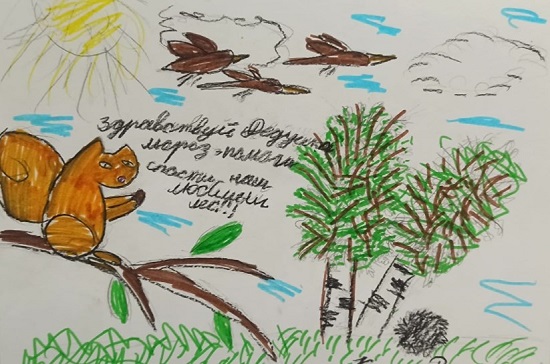 здравствуй Дедушка
мороз, помоги
спасти, наш
любимый
лес!!!